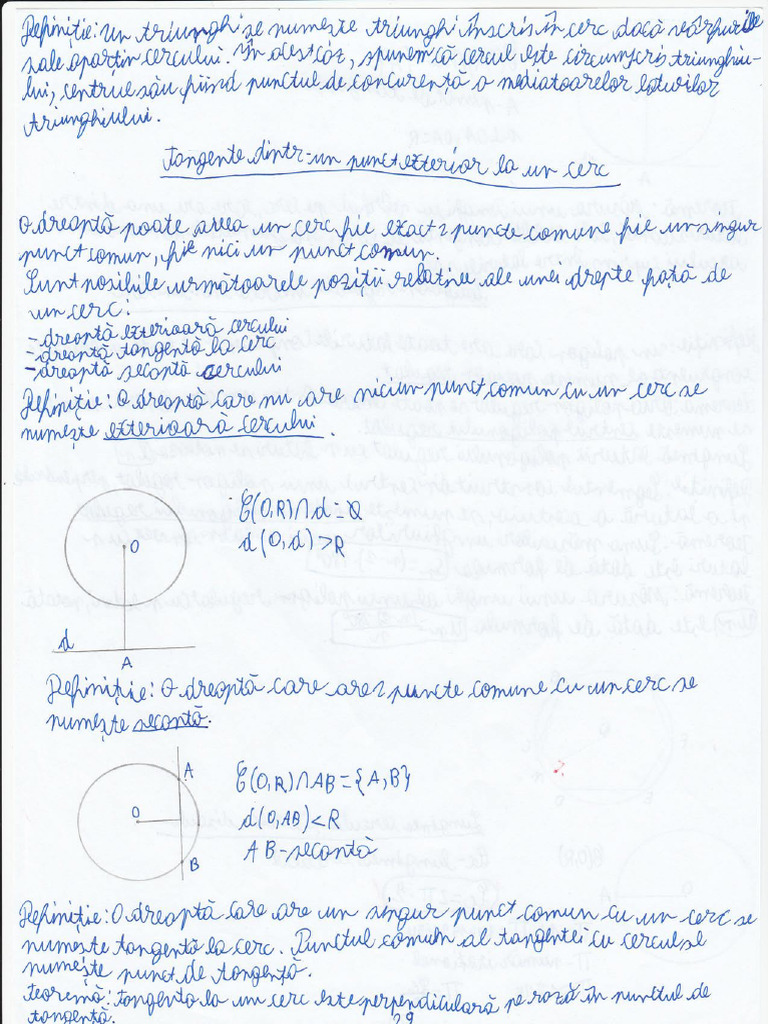 Definiție: Un triunghi se numește triunghi înscris în cerc dacă vârfurile
sale aparțin cercului. În acest caz, spunem că cercul este circumscris triunghiu-
lui, centrul său fiind punctul de concurență a mediatoarelor laturilor
triunghiului.
Tangente dintr-un punct exterior la un cerc
O dreaptă poate avea un cerc, fie exact 2 puncte comune fie un singur
punct comun, fie nici un punct comun.
Sunt posibile următoarele poziții relative ale unei drepte față de
un cerc:
- dreaptă exterioară cercului
- dreaptă tangentă la cerc
- dreaptă secantă cercului
Definiție: O dreaptă care nu are niciun punct comun cu un cerc se
numește exterioară cercului.
C(O,R)∩d=∅
d(O,d)>R
O
d
A
Definiție: O dreaptă care are 2 puncte comune cu un cerc se
numește secantă.
A
O
B
C(O,R)∩AB={A,B}
d(O,AB)<R
AB-secantă
Definiție: O dreaptă care are un singur punct comun cu un cerc se
numește tangentă la cerc. Punctul comun al tangentei cu cercul se
numește punct de tangență.
teoremă: tangenta la un cerc este perpendiculară pe rază în punctul de
tangență.
29